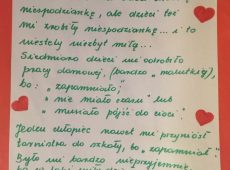 niespodziankę, ale dzieci też
mi zrobiły niespodziankę... i to
niestety niezbyt miłą...
Siedmioro dzieci nie odrobiło
pracy domowej (bardzo "malutkiej")
bo: "zapomniało",
" nie miało czasu" lub
" musiało pójść do cioci."
Jeden chłopiec nawet nie przyniósł
tornistra do szkoły, bo "zapomniał".
Było mi bardzo nieprzyjemnie